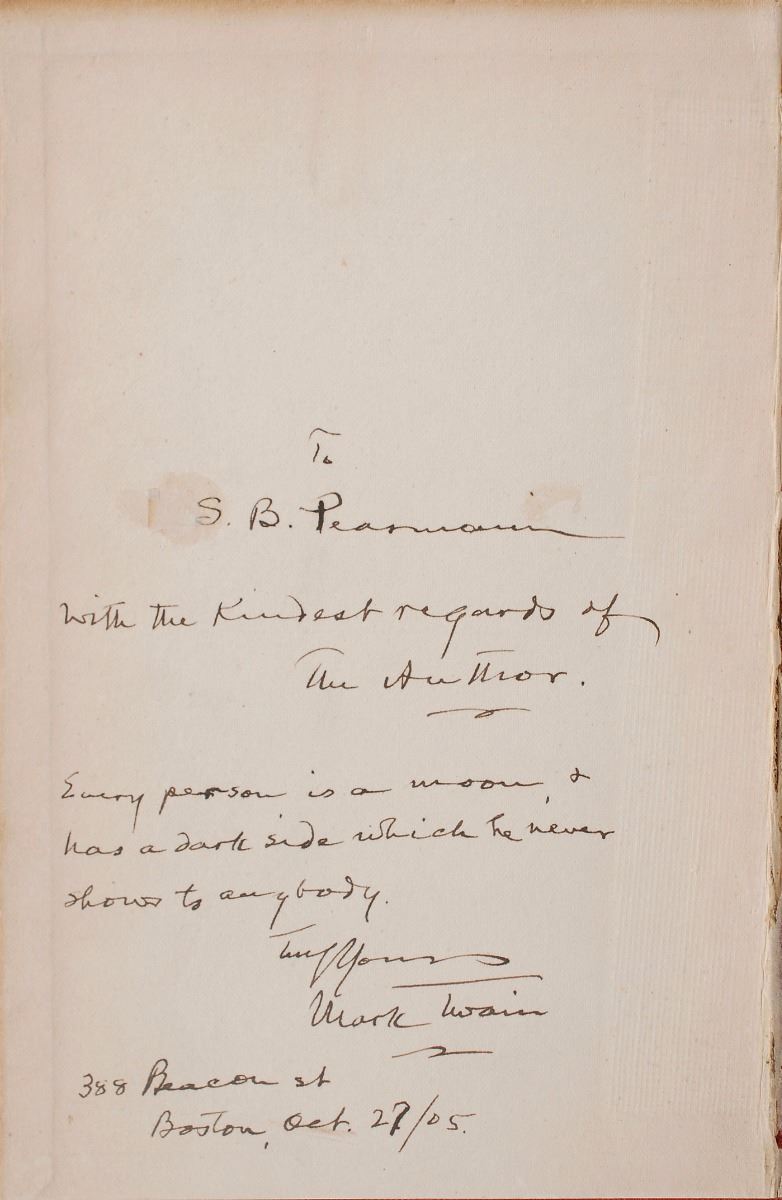 To
S. B. Pearmain
with the kindest regards of
The Author.
Every person is a moon, &
has a dark side which he never
shows to anybody.
Truly Yours
Mark Twain
388 Beacon st
Boston, Oct. 27/05.